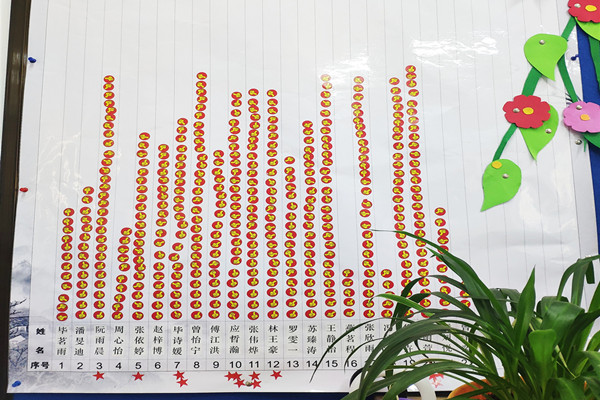 姓名 毕茗雨 潘旻迪 阮雨晨 周心怡 张依婷 赵梓博 毕诗媛 曾怡宁 傅江洪 应哲瀚 张伟烨 林王豪 罗雯一 苏臻涛 王静怡
序号 1 2 3 4 5 6 7 8 9 10 11 12 13 14 15 16